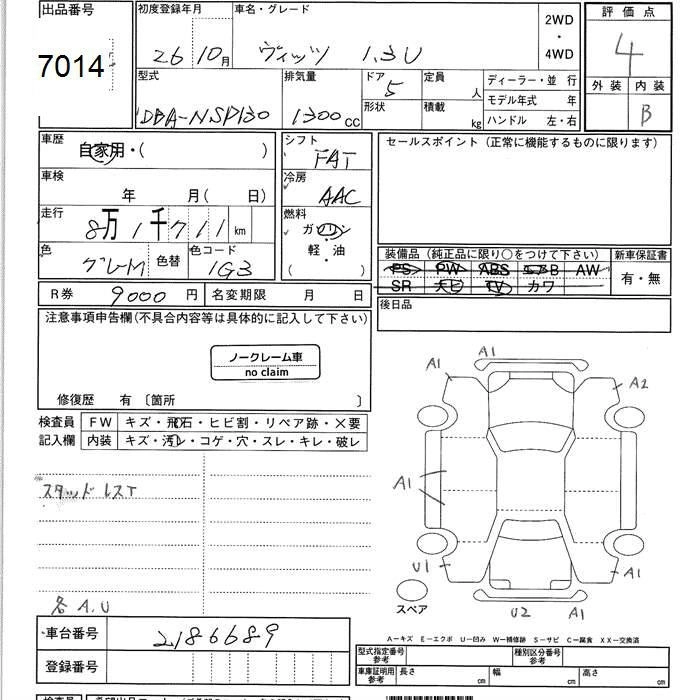 出品番号 初度登録年月 車名・グレード 2WD ・ 4WD 評価点
7014 26 10月 ヴィッツ 1.3U 4
型式 排気量 ドア 5 定員 人 ディーラー・並 行 外装 内装
DBA-NSP130 1300cc 形状 積載 kg モデル年式 年 B
ハンドル 左・右
車歴 自家用・( ) シフト FAT セールスポイント（正常に機能するものに限ります）
車検 年 月( 日) 冷房 AAC
走行 8万1千711km 燃料 ガソリン
軽・油
( )
色 グレーM 色替 色コード 1G3
装備品（純正品に限り○をつけて下さい） 新車保証書
PS PW ABS エアB AW 有・無
SR ナビ TV カワ
R券 9000円 名変期限 月 日 後日品
注意事項申告欄(不具合内容等は具体的に記入して下さい)
ノークレーム車
no claim
修復歴 有 〔箇所 〕
検査員 FW キズ・飛石・ヒビ割・リペア跡・×要
記入欄 内装 キズ・汚レ・コゲ・穴・スレ・キレ・破レ
スタッド レスT
各A.U
A1
A1 A2
A1
U1 A1
スペア
U2 A1
車台番号 2186689
登録番号
A－キズ E－エクボ U－凹み W－補修跡 S－サビ C－腐食 XX－交換済
型式指定番号 参考 種別区分番号 参考
車庫証明用 参考 長さ cm 幅 cm 高さ cm